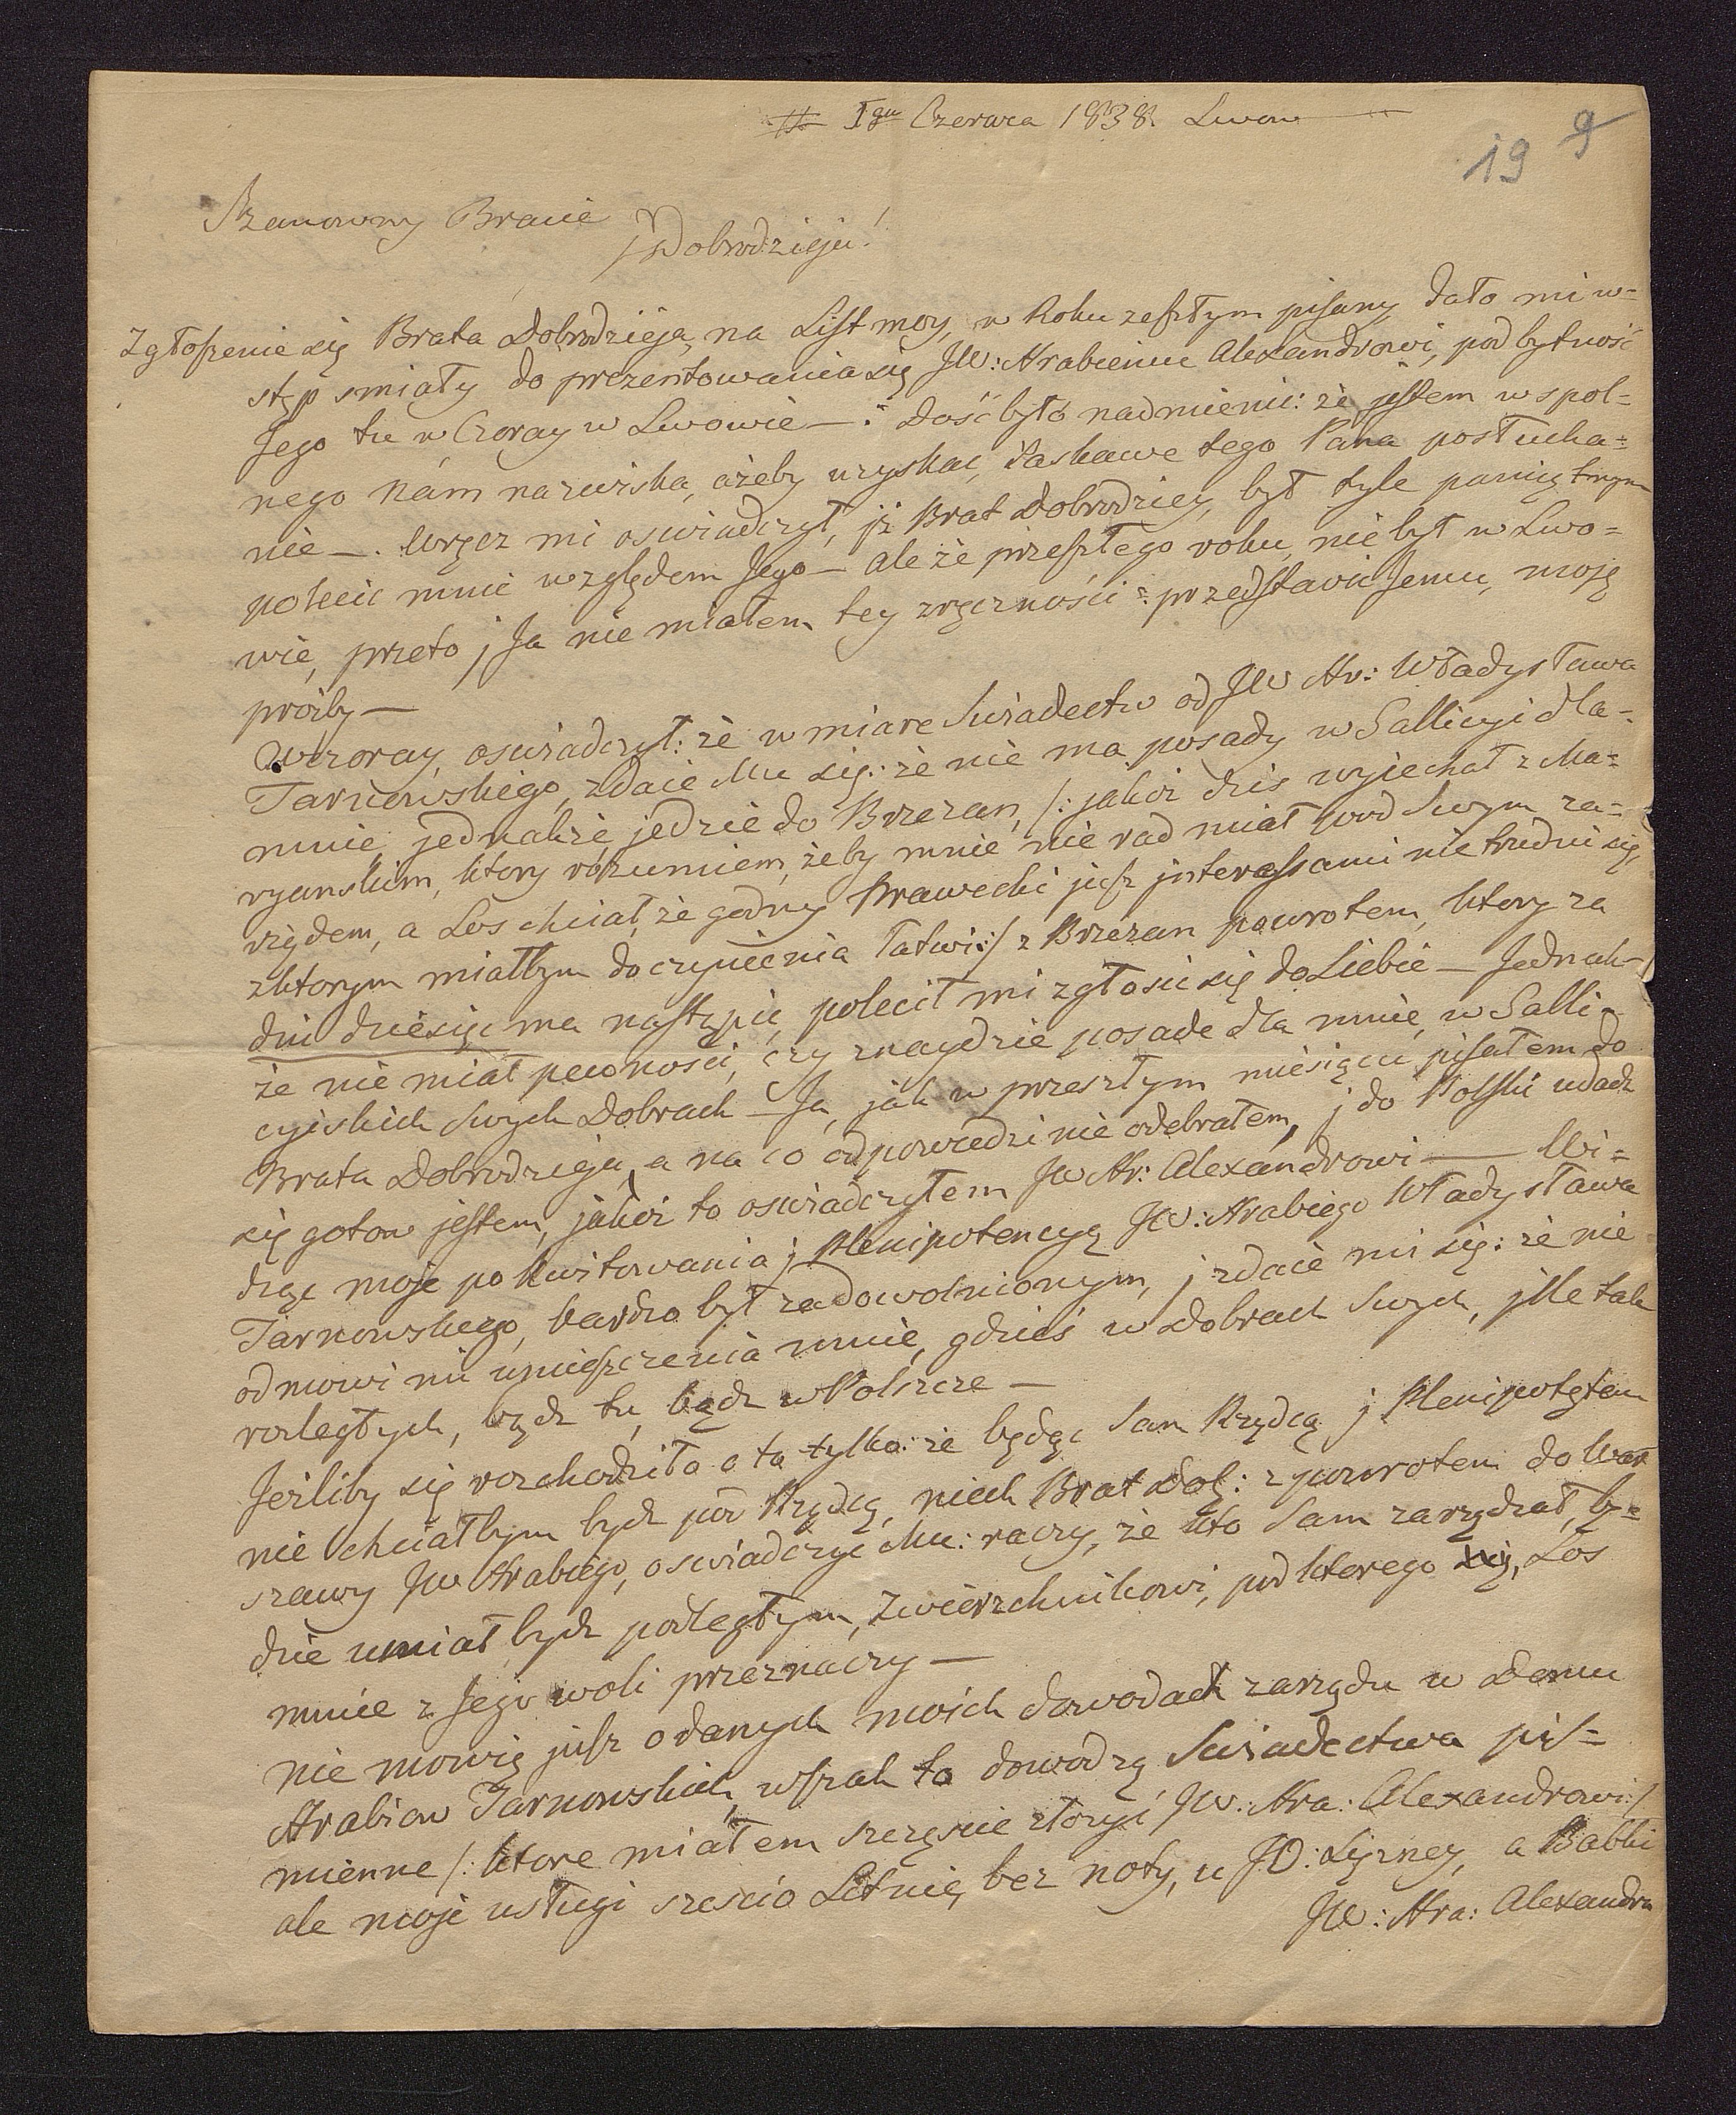 1go Czerwca 1838. Lwow
19 9
Szanowny Bracie
Dobrodzieju!
Zgłoszenie się Brata Dobrodzieja, na List moy, w Roku zeszłym pisany, dało mi w=
stęp smiały do prezentowania się JW: Hrabiemu Alexandrowi, pod bytność
Jego tu w Czoray w Lwowie —: dość było nadmienić: że jestem wspol=
nego Nám nazwiska, ażeby uzyskać, łaskawe tego Pana posłucha=
nie —. Wręcz mi oswiadczył, jż Brat Dobrodziey, był tyle pamiętnym
polecić mnie względem Jego — ale że przeszłego roku, nie był w Lwo=
wie, przeto j Ja nie miałem tey zręczności = przedstawić Jemu, moję
prośby —
Wczoray, oswiadczył: że w miarę Swiadectw od JW Hr: Władysława
Tarnowskiego, zdaie Mu się: że nie ma posady w Gallicyi dla=
mnie, jednakże jedzie do Brzezan, /: jakoż dzis wyjechał z Ma=
ryanskim, ktory rozumiem, żeby mnie nie rad miał pod Swym za=
rządem, a Los chciał, że godny Krawecki już jnteressami nie trudni się,
z ktorym miałbym do czynienia łatwi:/ z Brzezan powrotem, ktory za
dni dziesięc ma nastąpić, polecił mi zgłosić się do Siebie — Jednak=
że nie miał pewności, czy znaydzie posade dla mnie, w Galli=
cyiskich Swych Dobrach — Ja, jak w przeszłym miesiącu pisałem do
Brata Dobrodzieja, a na co odpowiedzi nie odebrałem, j do Polski udadz
się gotow jestem, jakoż to oswiadczyłem JW Hr: Alexandrowi — Wi=
dząc moje pokwitowania j Plenipotencyą JW: Hrabiego Władysława
Tarnowskiego, bardzo był zadowolnionym, j zdaie mi się: że nie
odmowi mi umieszczenia mnie, gdzieś w Dobrach Swych, jlle tak
rozległych, bądz tu, bądz w Polszcze —
Jeżliby się rozchodziło o to tylko: że będąc Sam Rządcą j Plenipotętem
nie chciałbym bydz pod Rządcą, niech Brat Dob: z powrotem do War
szawy JW Hrabiego, oswiadczyć Mu: raczy, że kto Sam zarządzał, bę=
dzie umiał bydz podległym, Zwierzchnikowi, pod ktorego Los
mnie z Jego woli przeznaczy —
Nie mowię jusz o danych moich dowodach zarządu w Domu
Hrabiow Tarnowskich, wszak to dowodzą Swiadectwa pis=
mienne /: ktore miałem szczęscie złożyć JW: Hra: Alexandrowi:/
ale moje usługi szescio Letnie, bez noty, u JO: Xiężney, a Babki
JW: Hra: Alexandra